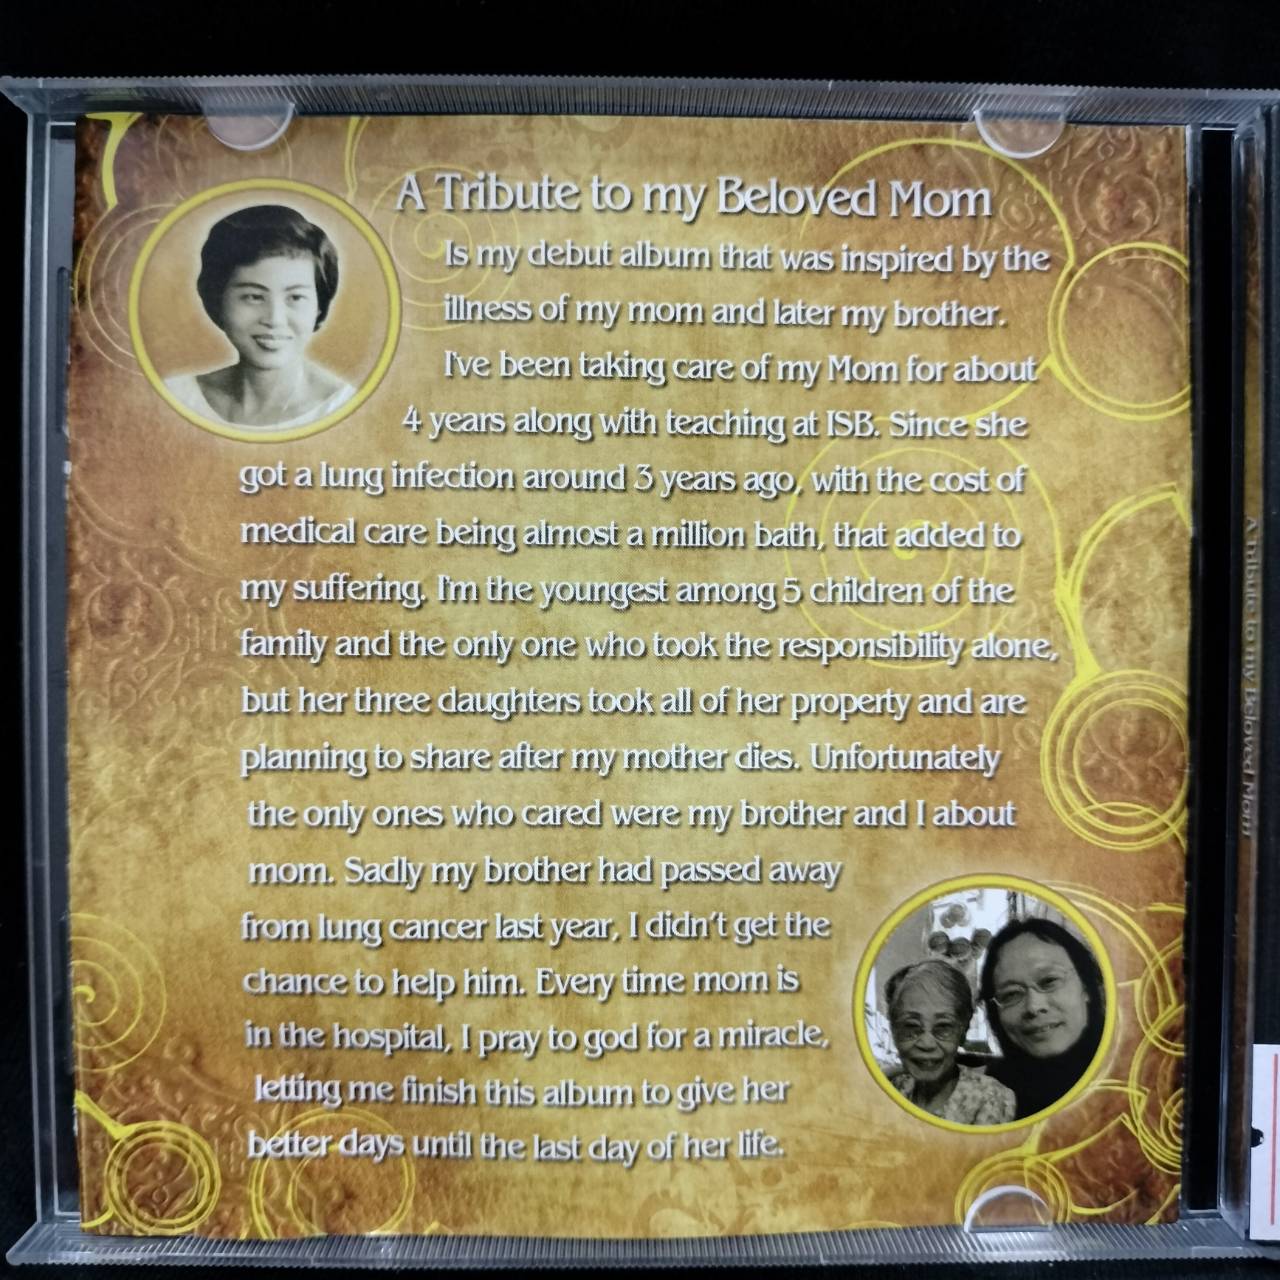 A Tribute to my Beloved Mom
Is my debut album that was inspired by the
illness of my mom and later my brother.
I've been taking care of my Mom for about
4 years along with teaching at ISB. Since she
got a lung infection around 3 years ago, with the cost of
medical care being almost a million bath, that added to
my suffering. I'm the youngest among 5 children of the
family and the only one who took the responsibility alone,
but her three daughters took all of her property and are
planning to share after my mother dies. Unfortunately
the only ones who cared were my brother and I about
mom. Sadly my brother had passed away
from lung cancer last year, I didn't get the
chance to help him. Every time mom is
in the hospital, I pray to god for a miracle,
letting me finish this album to give her
better days until the last day of her life.
A Tribute to my Beloved Mom